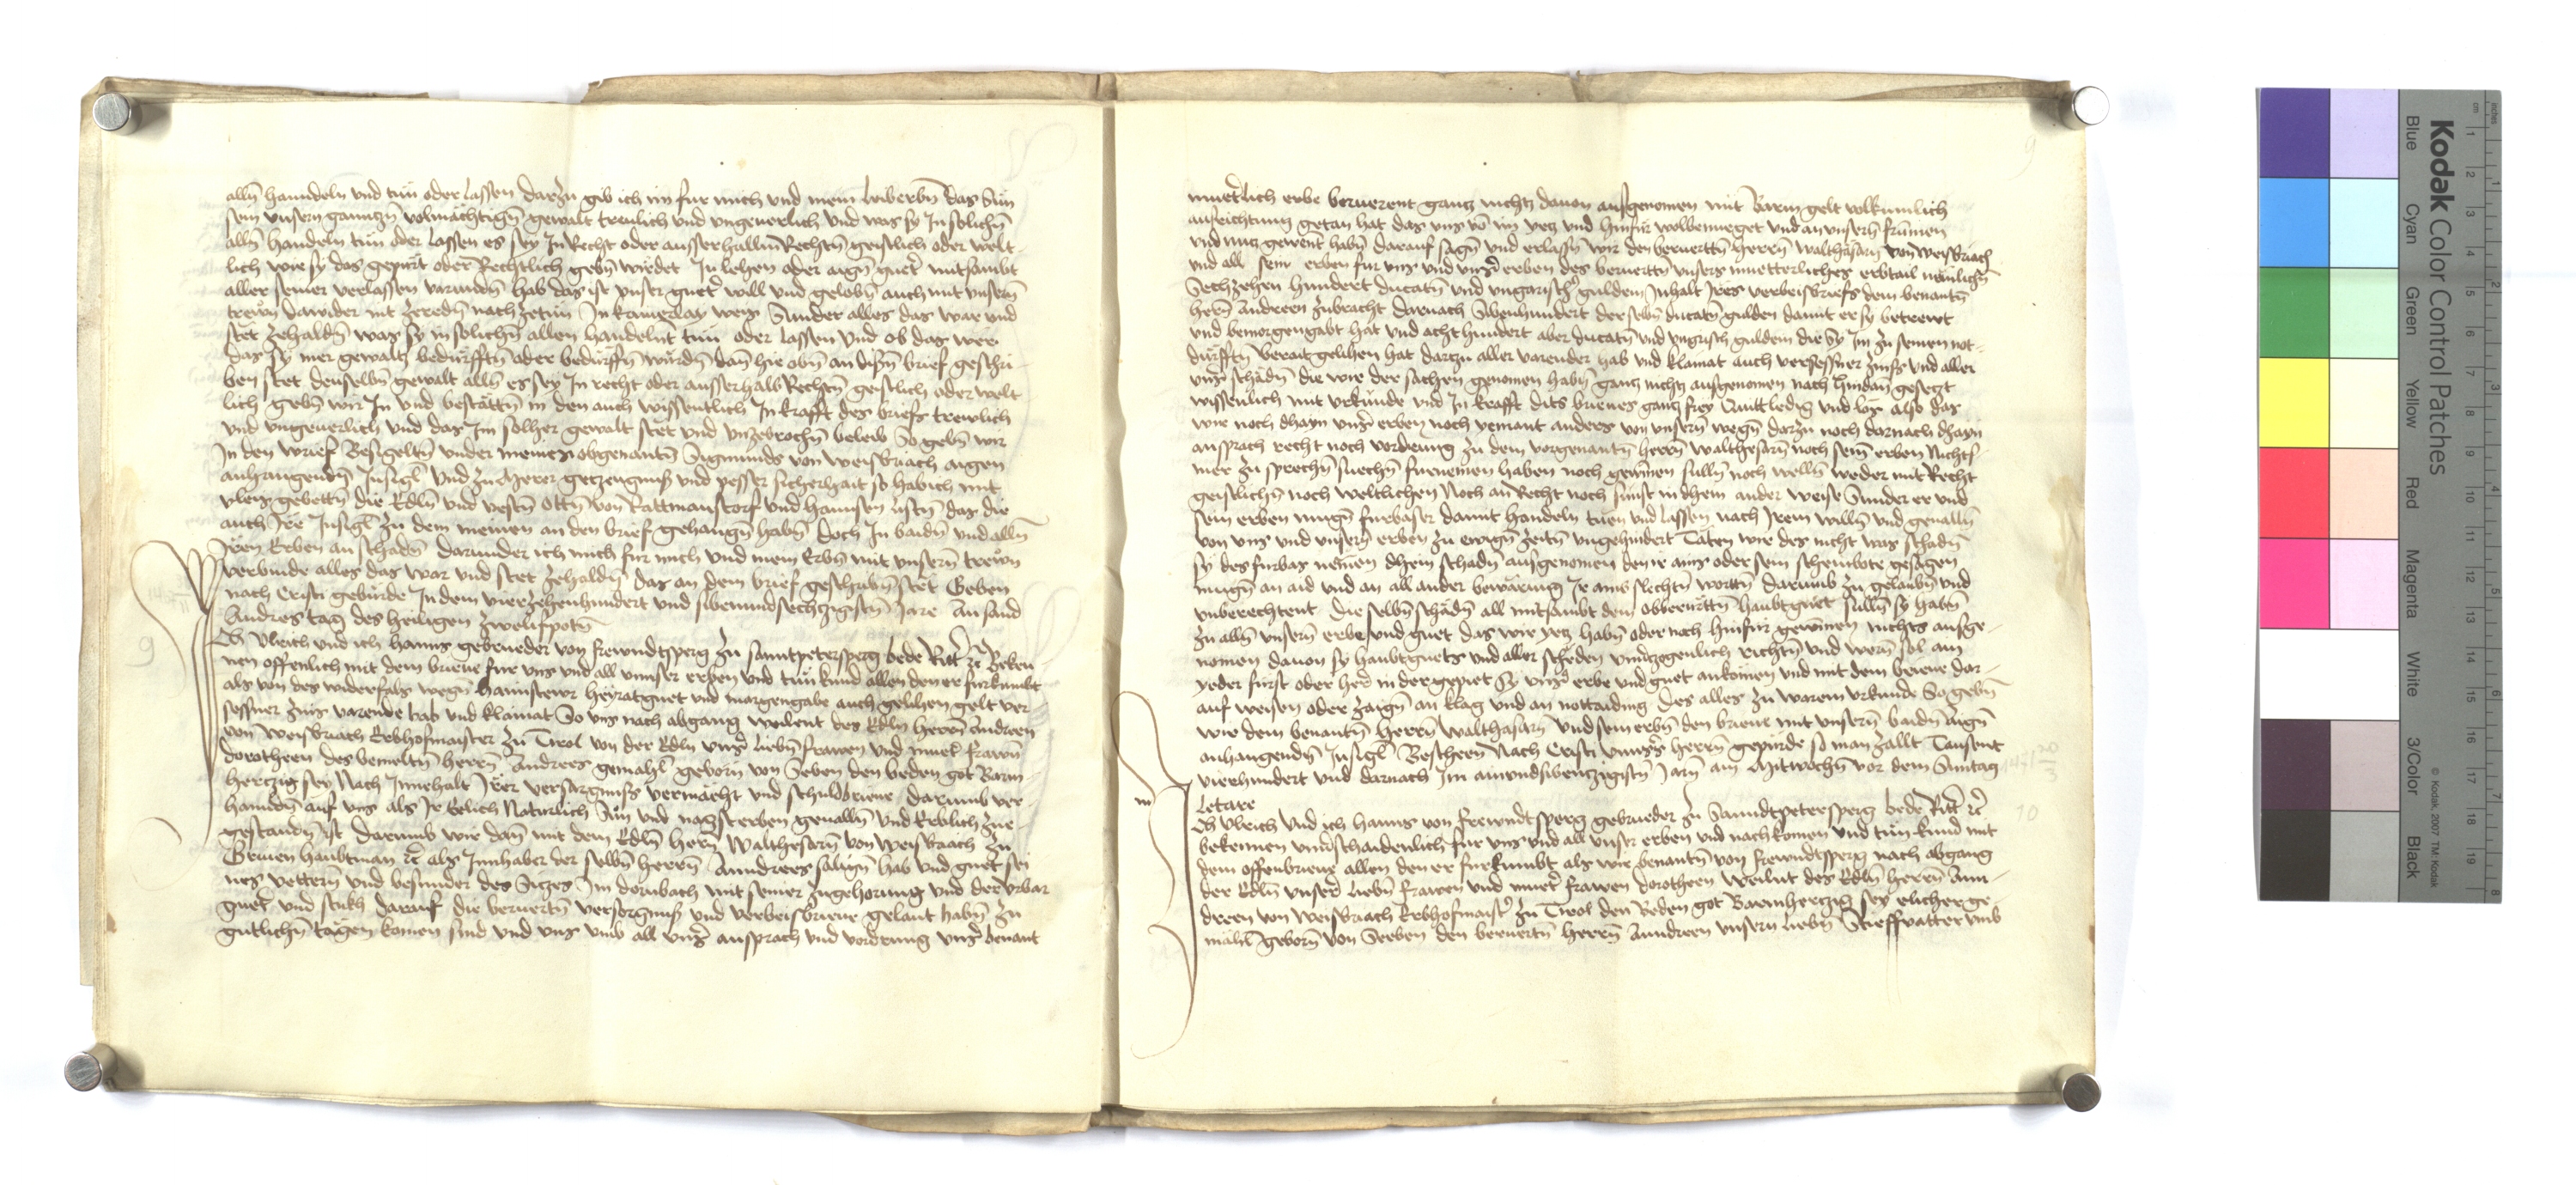 alln̄ hanndeln und tun oder lassen darzu gib ich im fur mich und mein leiberbn̄ das Sún
sein unsern ganntzn̄ volmächtign̄ gewalt treulich und ungeuerlich und was sy In solichn̄
alln̄ handeln tun oder lassen es sey In Recht oder ausserhallm̄ Rechtn̄ geistlich oder welt-
lich wie sy das gepúrt oder Rechtlich gebn̄ wirdet In lehen oder aign̄ guet̄ mitsambt
aller seiner verlassen varundn̄ hab das ist unser guet̄ will und gelobn̄ auch mit unsern̄
trewn̄ dawider nit zeredn̄ nach zetún In kainerlay weis Sunder alles das war und
stet zehaldn̄ was sy in solichn̄ allen handelnt tun oder lassen Und ob das were
das sy mer gewaltz bedúrfftn̄ oder bedúrffn̄ wúrdn̄ dan̄ hie obn̄ an disn̄ brief geschri-
ben stet denselbn̄ gewalt alln̄ es sey In recht oder ausserhalb Rechtn̄ geistlich oder welt
lich gebn̄ wir In und bestättn̄ in den auch wissentlich In krafft des briefs trewlich
und ungeuerlich und das Im solher gewalt stet und unzebrochn̄ beleib So gebn̄ wir
In den brief Besigeltn̄ under meines obgenantn̄ Sigmunds von Weisbriach aigen
anhangendn̄ Insigl̄ Und zu merer getzeugnuss und pesser sicherhait so hab ich mit
vleis gebettn̄ die Edln̄ und vestn̄ Ottn̄ von Rattmanstorf und Hannsen das die
auch Ire Insigl̄ zu dem meinen an den brief gehangn̄ habn̄ doch In baidn̄ und alln̄
Iren Erben an schadn̄ darunder ich mich fur mich und mein Erbn̄ mit unsern̄ trewn̄
verbinde alles das war und stet zehaldn̄ das an dem brief geschribn̄ stet Geben
nach Cristi geburde In dem vierzehenhundert und sibenundsechtzigistn̄ Jare An sand
Andres tag des heiligen zwelifpotn̄
9
Ich Ulrich und ich Hanns gebrueder von frewndtsperg zu sanntpetersperg bede Ritt̄ zc̄ Beken-
nen offenlich mit dem brieue fur uns und all unnser erben und tun kund allen den er furkumbt
als von des widerfals wegn̄ hannstewr heyratguet und morgengabe auch gelihen gelt ver-
sessner zins varende hab und klainat So uns nach abgang weilent des Edln̄ herrn̄ Andreen
von Weisbriach Erbhofmaister zu Tirol von der Edln̄ uns̄ liebn̄ frawen und muet̄ frawn̄
dorotheen des bemeltn̄ herrn̄ Andrees gemahl̄ geborn̄ von Seben den beden got Barm-
hertzig sey Nach Innehalt Irer versargnuss vermächt und schuldbrieue darumb ver
hanndn̄ auf uns als Ir Eelich Naturlich Sún und nagst erben geualln̄ und Erblich zue-
gestandn̄ ist darumb wir dan̄ mit dem Edln̄ hern̄ Walthesarn̄ von Weisbriach zu
haubtman zc̄ als Innhaber der selbn̄ herrn̄ Anndrees sälign̄ hab und guet sei
nes vettern̄ und besunder des Sitzes Im dornbach mit seiner zugehorung und der urbar
guet̄ und stukh darauf die beruertn̄ versorgnuss und verbeisbrieue gelaut habn̄ zu
gutlichn̄ tägen komen sind und uns umb all uns̄ ansprach und vordrung uns̄ benant
9
muet̄lich erbe beruerent gantz nichtz dauon ausgenomen mit barm gelt volkumlich
ausrichtung getan hat das uns vō im yetz und hinfúr wolbenueget und an unsern̄ frúmen
und nutz gewent habn̄ darauf sagn̄ und erlassn̄ wir den beruerttn̄ herrn̄ Walthasarn̄ von Weisbriach
und all sein erben fur uns und uns̄ erben des beruertn̄ unsers muetterliches erbtail nemlichn̄
Sechzehen hundert ducatn̄ und ungarisch̄ guldein Inhalt Ires verbeisbriefs dem benantn̄
hern̄ Andreen zubracht darnach Sibenhundert derselbn̄ ducatn̄ gulden damit er sy betrewt
und bemorgengabt hat und acht hundert aber ducatn̄ und ungrisch guldein die sy Im zu seinen not-
dúrfftn̄ berait gelihen hat dartzu aller varender hab und klainat auch versessner zinss und aller
uns̄ schädn̄ die wir der sachen genomen habn̄ gantz nichtz ausgenomen nach hindan̄ gesetzt
wissenlich mit urkúnde und In krafft dits brieues gantz frey Quittledig und los also das
wir noch dhayn uns̄ erben noch yemant anders von unsern̄ wegn̄ darzu noch darnach dhayn
ansprach recht noch vordrung zu dem vorgenantn̄ herrn̄ Walthesarn̄ noch sein̄ erben Nichts
mer zu sprechn̄ suechn̄ furnemen haben noch gewinen sulln̄ noch welln̄ weder mit Recht
geistlichn̄ noch weltlichen Noch an Recht noch súnst in dhein ander weise Sunder er und
sein erben mugn̄ furbaser damit handeln tuen und lassen nach Irem willn̄ und geualln̄
von uns und unsern̄ erben zu ewign̄ zeitn̄ ungehindert Täten wir des nicht was schadn̄
sy des furbas nemen dhein schadn̄ ausgenomen den ir ains oder sein scheinbote gesagen
mugn̄ an aid und an all ander bewärung Ir ains slechtn̄ worttn̄ darumb zu gelaubn̄ und
unberechtent Die selbn̄ schädn̄ all mitsambt dem obberurttn̄ haubtguet sulln̄ sy habn̄
zu alln̄ unsern̄ erbe und guet das wir yetz habn̄ oder noch hinfur gewinen nichts ausge-
nomen dauon sy haubtguets und aller scheden unuertzogenlich richtn̄ und wern̄ sol ain
yeder furst oder herr in der gepiet Sy uns̄ erbe und guet ankomen und mit dem brieue dar-
auf weisen oder zaign̄ an klag und an nottaiding Des alles zu warem urkunde So gebn̄
wir dem benantn̄ herrn̄ Walthasarn̄ und sein erbn̄ den brieue mit unsern̄ baidn̄ aign̄
anhangendn̄ Insigl̄ Bescheen Nach Cristi unsers herrn̄ gepurde so man zallt Tausent
vierhundert und darnach Im ainundsibentzigistn̄ Jarn̄ am Mitwochn̄ vor dem Suntag
Letare
10
Ich Ulrich Und ich Hanns von frewndtsperg gebrueder zu Sanndtpetersperg bede Ritt̄ zc̄
bekennen unuerschaidenlich fur uns und all unser erben und nachkomen und tún kund mit
dem offenbrieue allen den er furkumbt als wir benantn̄ von frewndtsperg nach abgang
der Edln̄ unser̄ liebn̄ frawen und muet̄ frawen dorotheen weilnt des Edln̄ herrn̄ Ann-
dreen von Weisbriach Erbhofmaist̄ zu Tirol den Beden got Barmhertzig sey elicher ge-
mähl̄ geborn̄ von Seeben den beruertn̄ herrn̄ Anndreen unsern liebn̄ Stieffvatter umb
Kodak Color Control Patches
Blue
Cyan
Green
Yellow
Red
Magenta
White
3/Color
Black
© Kodak, 2007 TM: Kodak
cm
1
2
3
4
5
6
7
8
9
10
11
12
13
14
15
16
17
18
19
inches
1
2
3
4
5
6
7
8